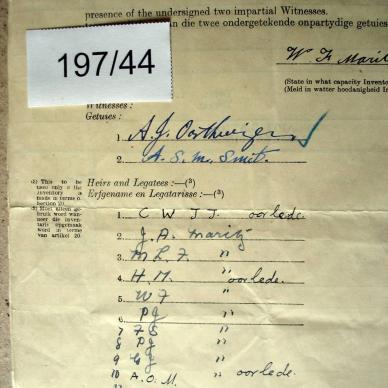 presence of the undersigned two impartial Witnesses.
an die twee ondergetekende onpartydige getuies
197/44
W. F. Maritz
(State in what capacity Inventory
(Meld in watter hoedanigheid In
Witnesses :
Getuies :
1. A. J. Oosthuizen
2. A. S. M. Smit.
(3) This to be used only if the inventory is made in terms of section 20.
(3) Moet alleen gebruik word wanneer die inventaris opgemaak word in terme van artikel 20.
Heirs and Legatees :—(3)
Erfgename en Legatarisse :—(3)
1. C W J J. oorlede.
2. J. A. Maritz
3. M L F. "
4. H. M. " oorlede.
5. W F "
6. P G "
7 F S "
8 P J "
9 G J "
10 A. O. M. " oorlede.